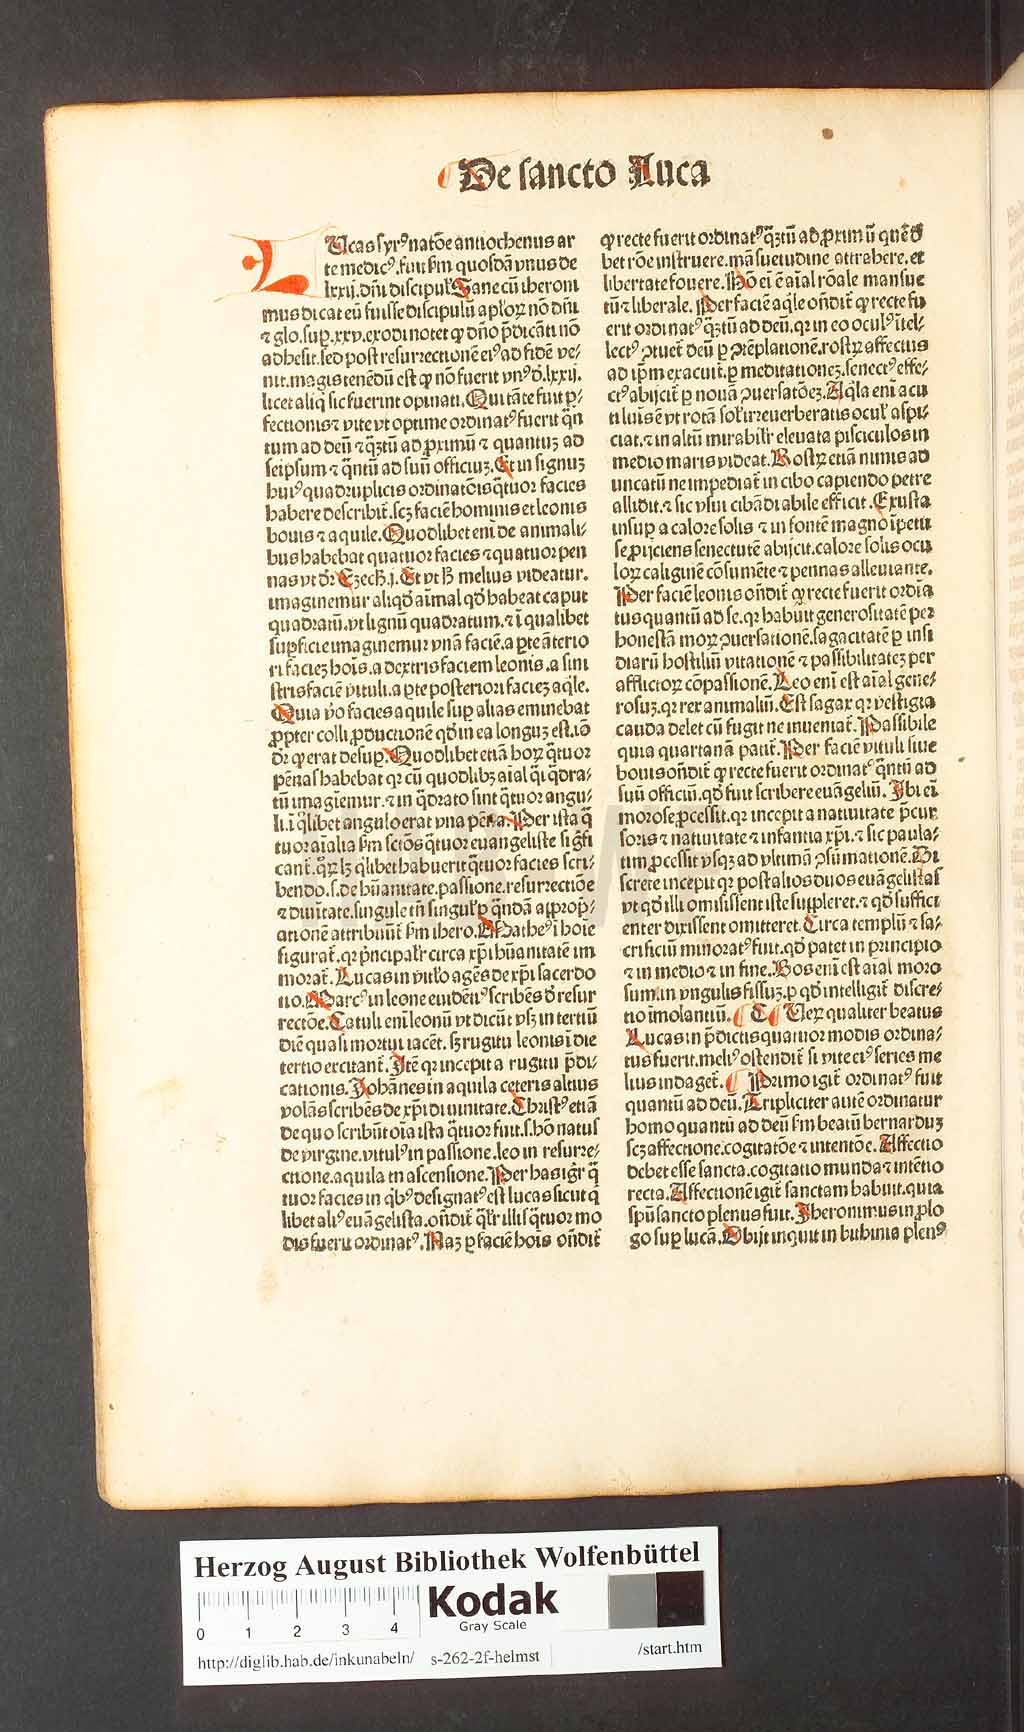 De sancto Luca
LUcas syrꝰ natōe antiochenus ar
te medicꝰ. fuit ẜm quosdā vnus de
lxxij. dn̄i discipul̕. Sane cū iheroni
mus dicat eū fuisse discipulū apl̕oꝝ nō dn̄i
⁊ glo. suꝑ. xxv. exodi notet ꝙ dn̄o p̄dicāti nō
adhesit. sed post resurrectionē eiꝰ ad fidē ve⸗
nit. magis tenēdū est ꝙ nō fuerit vnꝰ d̕. lxxij.
licet aliq̄ sic fuerint opinati. Qui tāte fuit ꝑ⸗
fectionis ⁊ vite vt optime ordinatꝰ fuerit q̄n
tum ad deū ⁊ q̄ꝫtū ad ꝓximū ⁊ quantuꝫ ad
seipsum ⁊ q̄ntū ad suū officiuꝫ. Et in signuꝫ
huiꝰ quadruplicis ordinatōis q̄tuor facies
habere describit̄. scꝫ faciē hominis et leonis
bouis ⁊ aquile. Quodlibet eni̅ de animali⸗
bus habebat quatuor facies ⁊ quatuor pen
nas vt dr̄ Ezech. j. Et vt h̄ melius videatur.
imaginemur aliqd̕ aīmal qd̕ habeat caput
quadratū. vt lignū quadratum. ⁊ ī qualibet
suꝑficie imaginemur vnā faciē. a ꝑte āterio
ri facieꝫ hoīs. a dextris faciem leonis. a sini
stris faciē vituli. a ꝑte posteriori facieꝫ aq̄le.
Quia v̕o facies aquile suꝑ alias eminebat
ꝓpter colli ꝓductionē qd̕ in ea longuꝫ est. iō
dr̄ ꝙ erat desuꝑ. Quodlibet etiā hoꝝ q̄tuor
pēnas habebat qꝛ cū quodlibꝫ aīal q̄i q̄dra⸗
tū imagīemur. ⁊ in q̄drato sint q̄tuor angu⸗
li. ī q̄libet angulo erat vna pēna. Per ista q̄
tuor aīalia ẜm sctōs q̄tuor euangeliste sigfi
cant̄. q̄ꝝ lꝫ q̄libet habuerit q̄tuor facies scri⸗
bendo. s. de hūanitate. passione. resurrectiōe
⁊ diuītate. singule tn̄ singul̕ ꝑ q̄ndā apꝓp̄⸗
ationē attribuūt̄ ẜm ihero. Matheꝰ ī hoīe
figurat̄. qꝛ pncipalr̄ circa xp̄i hūanitatē im
morat̄. Lucas in vitl̕o agēs de xp̄i sacerdo
tio. Marcꝰ in leone euidētiꝰ scribēs d̕ resur
rectōe. Catuli eni̅ leonū vt dicūt vsꝫ in tertiū
diē quasi mortui iacēt. sꝫ rugitu leonis ī die
tertio excitant̄. Itē qꝛ incepit a rugitu p̄di⸗
cationis. Johānes in aquila ceteris altius
volās scribēs de xp̄i diuinitate. Christꝰ etiā
de quo scribūt oīa ista q̄tuor fuit. s. hō natus
de virgine. vitulꝰ in passione. leo in resurre⸗
ctione. aquila in ascensione. Per has igr̄ q̄
tuor facies in qb̕ꝰ designatꝰ est lucas sicut q̄
libet aliꝰ euāgelista. ondit̄ q̄lr̄ illis q̄tuor mo
dis fuerit ordinatꝰ. Naꝫ ꝑ faciē hoīs ondit̄
ꝙ recte fuerit ordinatꝰ q̄ꝫtū ad ꝓximū quē d̕
bet rōe instruere. māsuetudine attrahere. et
libertate fouere. Hō ei̅ ē aīal rōale mansue
tū ⁊ liberale. Per faciē aq̄le ondit̄ ꝙ recte fu
erit ordinatꝰ q̄ꝫtū ad deū. qꝛ in eo oculꝰ ītel⸗
lectꝰ ꝯtuet̄ deū ꝑ ꝯtēplationē. rostꝝ affectus
ad ip̄m exacuit̄ ꝑ meditationeꝫ. senectꝰ effe⸗
ctꝰ abijcit̄ ꝑ nouā ꝯuersatōeꝫ. Aq̄la eni̅ acu
ti luīs ē vt rotā sol̕ irreuerberatis ocul̕ aspi⸗
ciat. ⁊ in altū mirabilr̄ eleuata pisciculos in
medio maris videat. Rostꝝ etiā nimis ad
uncatū ne impediat̄ in cibo capiendo petre
allidit. ⁊ sic vsui cibādi abile efficit. Exusta
insuꝑ a calore solis ⁊ in fontē magno īpetu
se ꝓijciens senectutē abijcit. calore solis ocu
loꝝ caliginē cōsumēte ⁊ pennas alleuiante.
Per faciē leonis ondit̄ ꝙ recte fuerit ordīa
tus quantū ad se. qꝛ habuit generositatē per
honestā moꝝ ꝯuersationē. sagacitatē ꝑ insi
diarū hostiliū vitationē ⁊ passibilitateꝫ per
afflictoꝝ cōpassionē. Leo eni̅ est aīal gene⸗
rosuꝫ. qꝛ rex animaliū. Est sagax qꝛ vestigia
cauda delet cū fugit ne inueniat̄. Passibile
quia quartanā patit̄. Per faciē vituli siue
bouis ondit̄ ꝙ recte fuerit ordinatꝰ q̄ntū ad
suū officiū. qd̕ fuit scribere euāgeliū. Ibi ei̅
morose ꝓcessit. qꝛ incepit a natiuitate p̄cur
soris ⁊ natiuitate ⁊ infantia xp̄i. ⁊ sic paula⸗
tim ꝓcessit vsqꝫ ad vltimā ꝯsūmationē. Di
screte incepit qꝛ post alios duos euāgelistas
vt qd̕ illi omisissent iste suppleret. ⁊ qd̕ suffici
enter dixissent omitteret. Circa templū ⁊ sa⸗
crificiū minoratꝰ fuit. qd̕ patet in principio
⁊ in medio ⁊ in fine. Bos eni̅ est aīal moro
sum. in vngulis fissuꝫ. ꝑ qd̕ intelligit̄ discre⸗
tio īmolantiū. C Veꝝ qualiter beatus
Lucas in p̄dictis quatuor modis ordina⸗
tus fuerit. meliꝰ ostendit̄ si vite eiꝰ series me
lius indaget̄. Primo igit̄ ordinatꝰ fuit
quantū ad deū. Tripliciter autē ordinatur
homo quantū ad deū ẜm beatū bernarduꝫ
scꝫ affectione. cogitatōe ⁊ intentōe. Affectio
debet esse sancta. cogitatio munda ⁊ intētio
recta. Affectionē igit̄ sanctam habuit. quia
spū sancto plenus fuit. Iheronimus in ꝓlo
go suꝑ lucā. Obijt inquit in bithinia plenꝰ
Herzog August Bibliothek Wolfenbüttel
0 1 2 3 4
Kodak
Gray Scale
http://diglib.hab.de/inkunabeln/ s-262-2f-helmst /start.htm